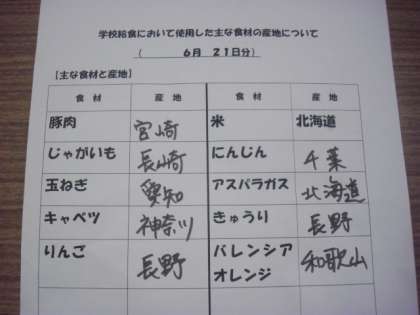 学校給食において使用した主な食材の産地について
（　6月　21日分）
【主な食材と産地】
食材　産地　食材　産地
豚肉　宮崎　米　北海道
じゃがいも　長崎　にんじん　千葉
玉ねぎ　愛知　アスパラガス　北海道
キャベツ　神奈川　きゅうり　長野
りんご　長野　バレンシア　和歌山
オレンジ